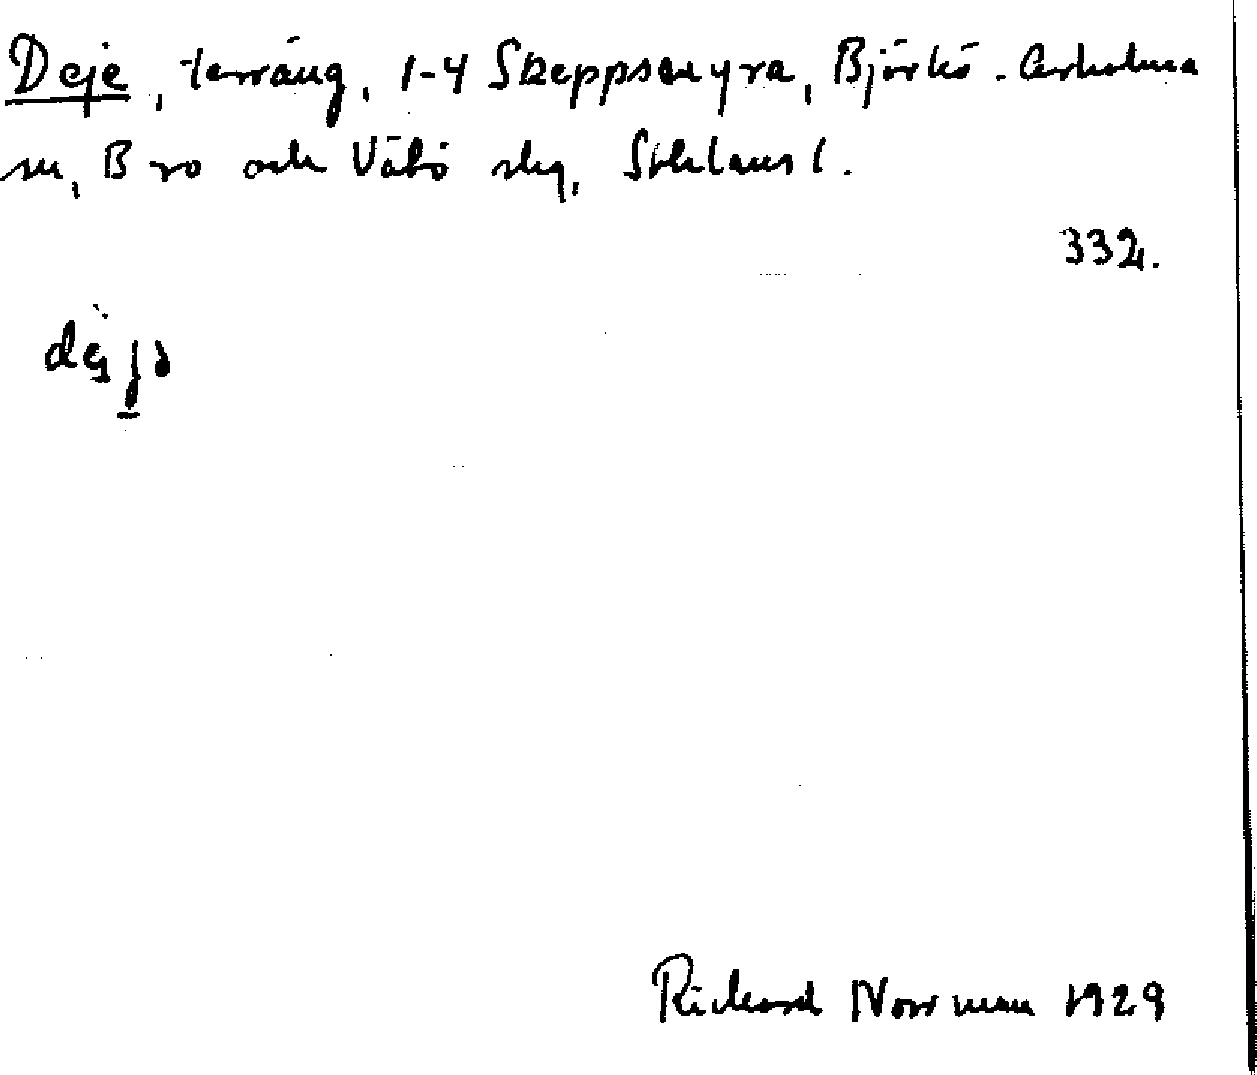 Deje, terräng, 1-4 Skeppsmyra, Björkö-Arholma
sn, Bro och Vätö skg, Sthlms l.
332.
Rickard Norrman 1929